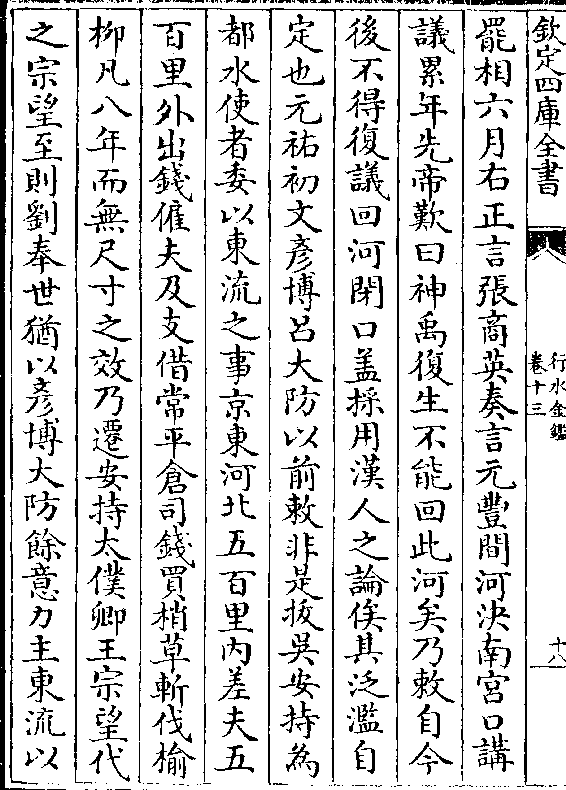 欽定四庫全書
行水金鑑
卷十三
十八
罷相六月右正言張商英奏言元豐間河決南宫口講
議累年先帝歎曰神禹復生不能回此河矣乃敕自今
後不得復議回河閉口盖採用漢人之論俟其泛濫自
定也元祐初文彥博吕大防以前敕非是拔吳安持為
都水使者委以東流之事京東河北五百里内差夫五
百里外出錢僱夫及支借常平倉司錢買梢草斬伐榆
柳凡八年而無尺寸之效乃遷安持太僕卿王宗望代
之宗望至則劉奉世猶以彥博大防餘意力主東流以